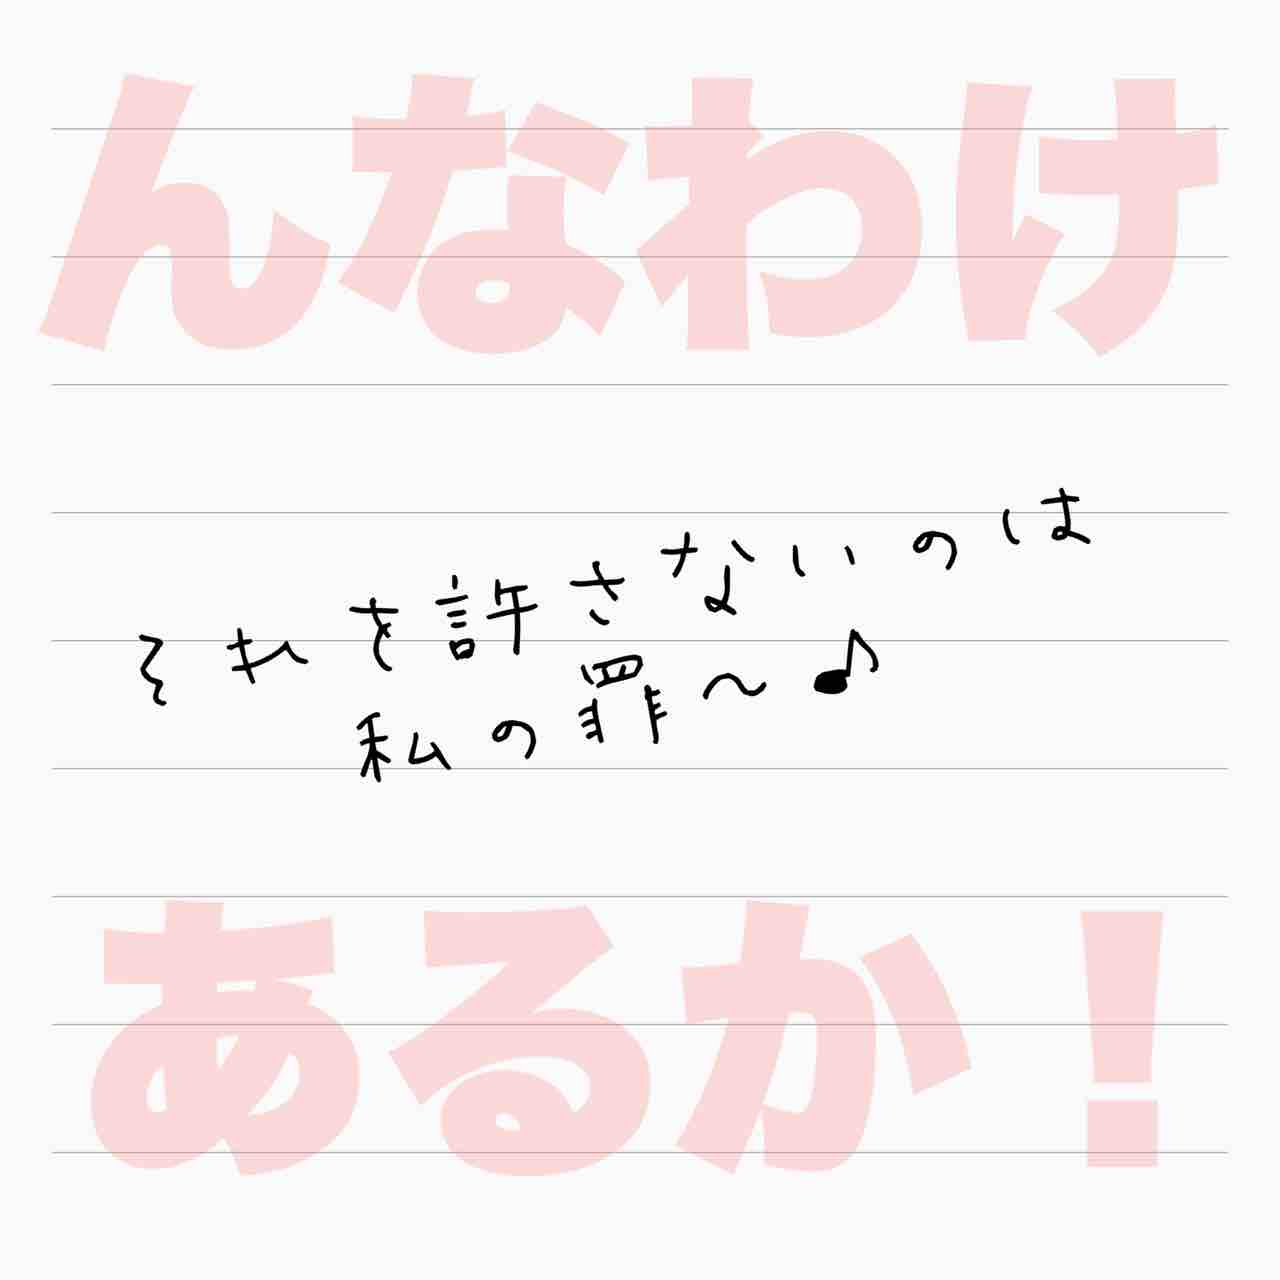 んなわけ
それを許さないのは
私の罪〜♪
あるか！